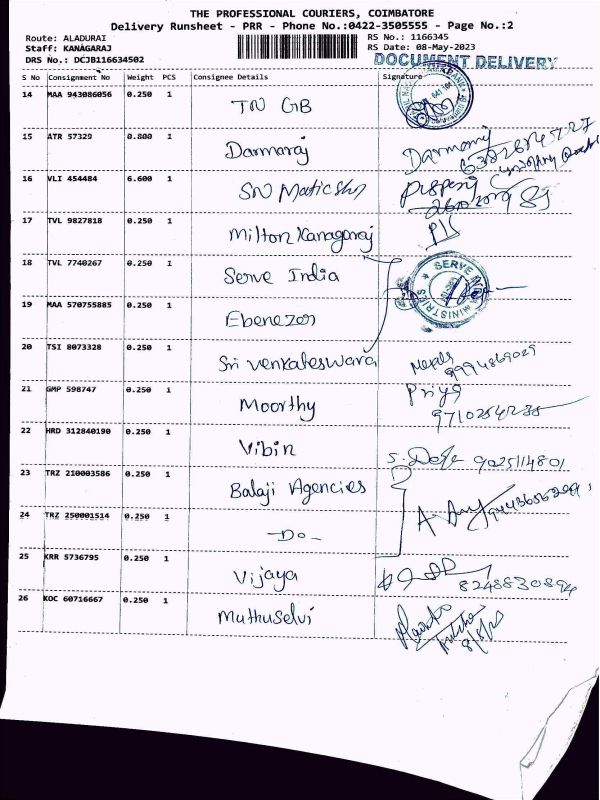 THE PROFESSIONAL COURIERS, COIMBATORE
Delivery Runsheet - PRR - Phone No.:0422-3505555 - Page No.:2
Route: ALADURAI RS No.: 1166345
Staff: KANAGARAJ RS Date: 08-May-2023
DRS No.: DCJB116634502 DOCUMENT DELIVERY
S No Consignment No Weight PCS Consignee Details Signature
14 MAA 943086056 0.250 1 TN GB
15 ATR 57329 0.800 1 Darmaraj
16 VLI 454484 6.600 1
17 TVL 9827818 0.250 1 Milton Kanagaraj
18 TVL 7740267 0.250 1 Serve India SERVE MINISTRIES
19 MAA 570755885 0.250 1 Ebenezor
20 TSI 8073328 0.250 1 Sri Venkateswara 9994869029
21 GMP 598747 0.250 1 Moorthy Priya
22 HRD 312840190 0.250 1 Vibin 9025114801
23 TRZ 210003586 0.250 1 Balaji Agencies
24 TRZ 250001514 0.250 1 -Do-
25 KRR 5736795 0.250 1 Vijaya 8248830894
26 KOC 60716667 0.250 1 Muthuselvi